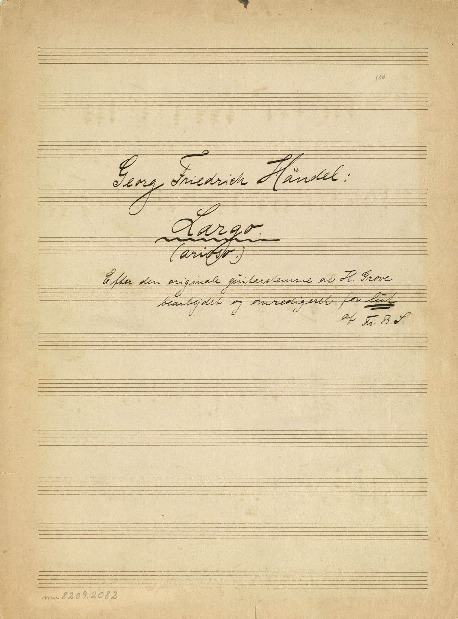 Georg Friedrich Händel:
Largo
(arioso.)
Efter den originale guitarstemme af H. Grove
bearbejdet og omredigeret for lut
af Fr. B. S
mu 8209.2082